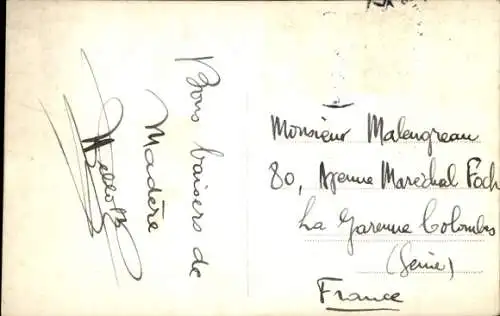 Bons baisers de
Madère
Monsieur Malengreau
80, Avenue Maréchal Foch
La Garenne Colombes
(Seine)
France